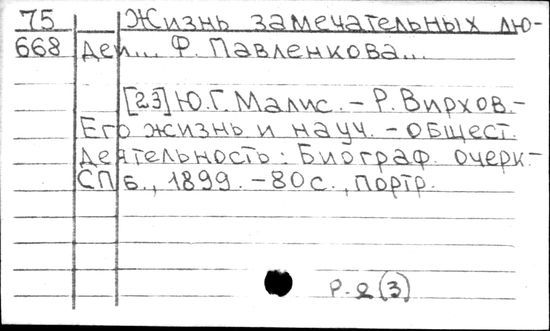 75 Жизнь замечательных лю-
668 дей... Ф. Павленкова...
[23] Ю.Г. Малис. – Р. Вирхов. –
Его жизнь и науч. – общест.
деятельность: Биограф. очерк. –
СПб., 1899. – 80 с., портр.
Р.2(3)